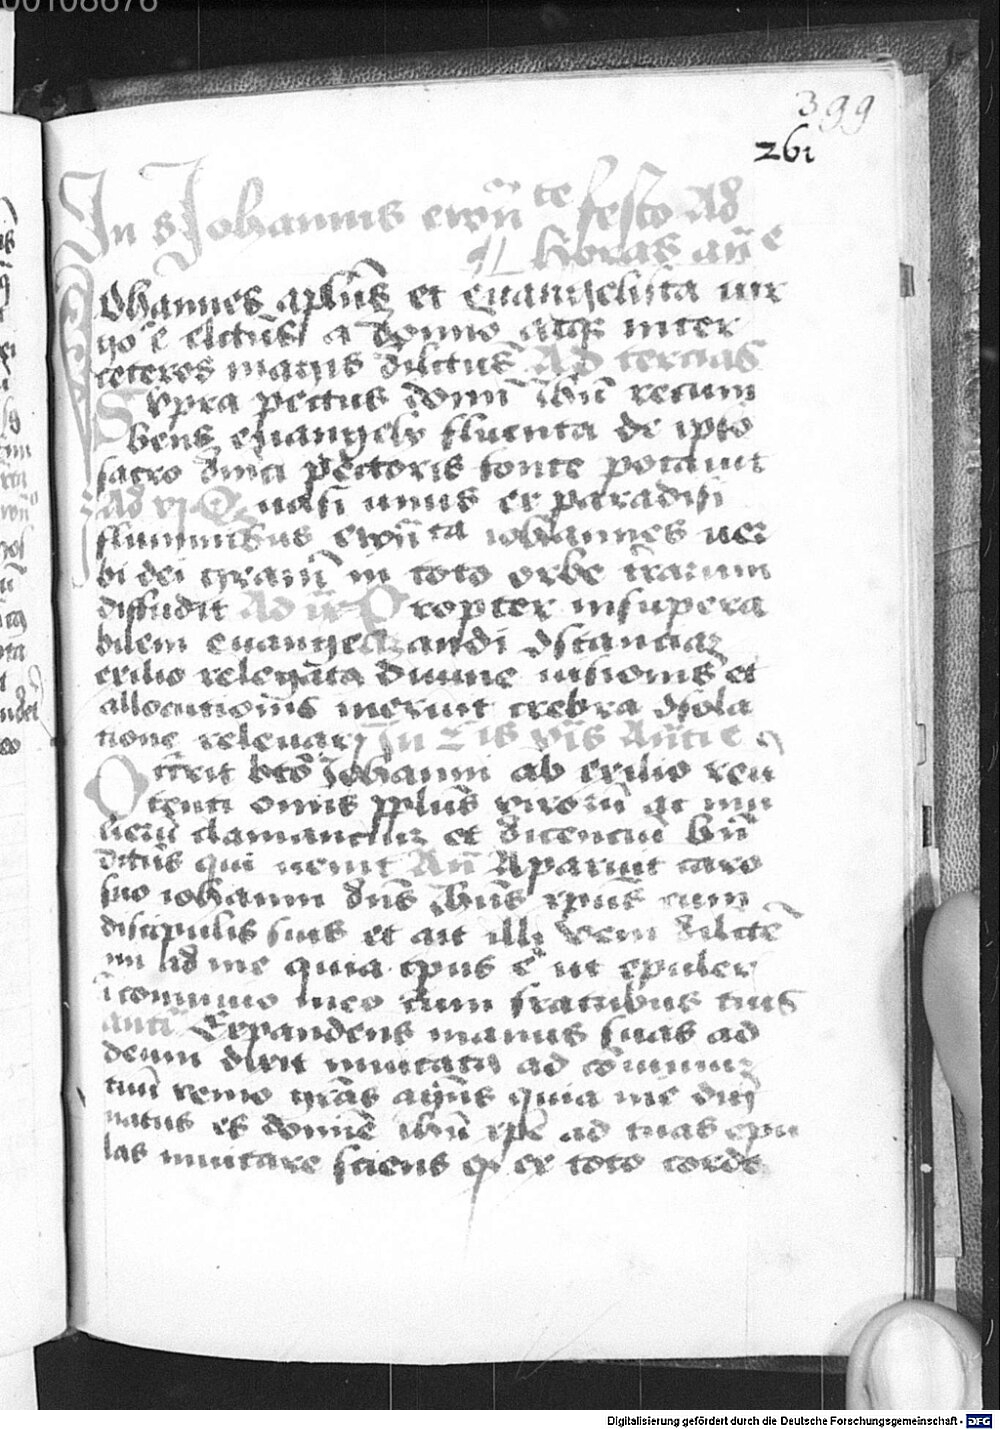 00108676
399
261
In s Johannis ewñ te festo Ad
Horas añ e
Johannes aplũs et euangelista uir
go ē elctũs a domno atqz inter
ceteros magis dilctus Ad tercias
Supra pectus domĩ ihũ recum
bens euangely fluenta de ipso
sacro dnici pectoris fonte potauit
Ad vj Quasi unus ex paradisi
fluminibus ewñ ta iohannes uer
bi dei graciã in toto orbe trarum
diffudit Ad Propter insupera
bilem euangelizandi 9stanciaz
exilio relegata diuine uisionis et
allocutionis meruit crebra 9sola
tione releuari In is añti e
Occrit bto Johanni ab exilio reu
tenti omnis pplus uirorũ ac mu
lierũ clamanciuz et dicentiũ bñ
dictus qui uenit Añ Aparuit caro
suo iohanni dns ihus xpus cum
discipulis suis et ait illi veni dilcte
mi ad me quia tpus ē ut epuler
ĩ conuiuio meo cum fratribus tuis
anti Expandens manus suas ad
deum dixit inuitatus ad conuiuiuz
tuũ venio grãs agẽs quia me dig
natus es domine ihũ xpe ad tuas epu
las inuitare sciens q ex toto corde
Digitalisierung gefördert durch die Deutsche Forschungsgemeinschaft - DFG